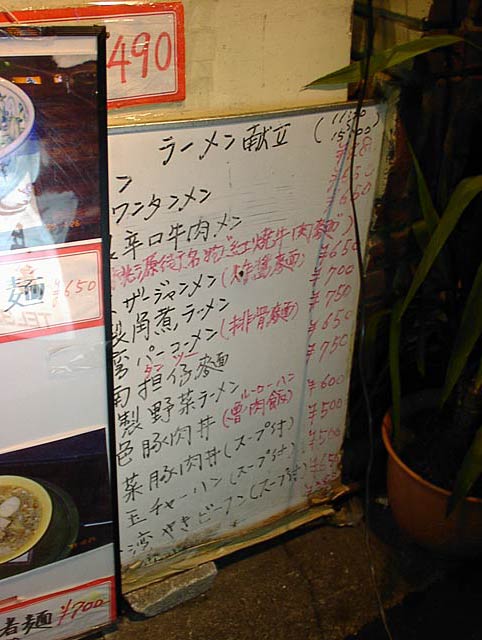 490
ラーメン献立 (11:00
15:00)
ン
ワンタンメン
辛口牛肉メン ¥650
桃源街で名物ご紅焼牛肉麺)
ザージャンメン(炸醤麺) ¥650
製角煮ラーメン ¥700
パーコーメン(排骨麺) ¥750
タンツー
担仔麺 ¥650
製野菜ラーメン ¥750
色豚肉丼(魯肉飯) ルーローハン ¥600
菜豚肉丼(スープ付) ¥500
玉チャーハン(スープ付) ¥500
湾やきビーフン(スープ付)
麺 ¥650
着麺 ¥700